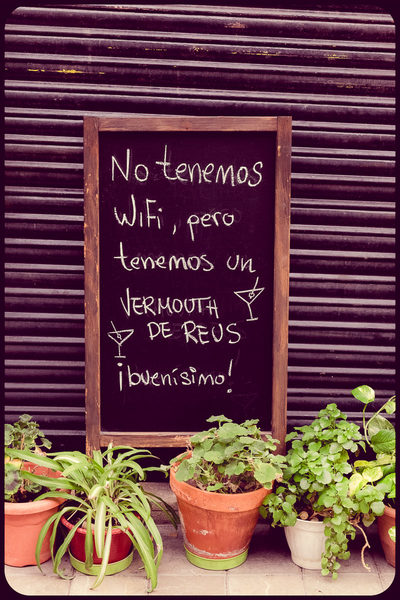 No tenemos
WiFi, pero
tenemos un
VERMOUTH
DE REUS
¡buenísimo!